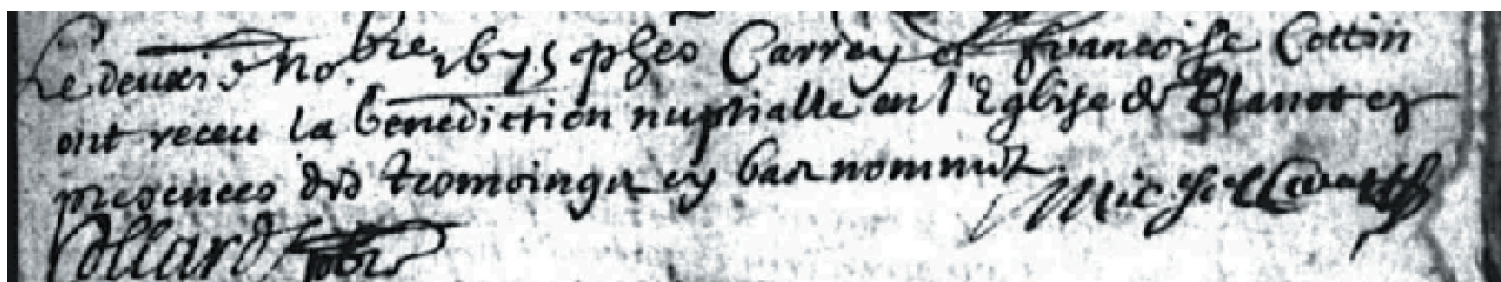 Le deuxi e No.bre 1675 phes Carrey et francoise Cottin
ont receu la benediction nuptialle en l'Eglise de Blanot es
presences des tesmoings cy bas nommez
Michel
Collard pbre